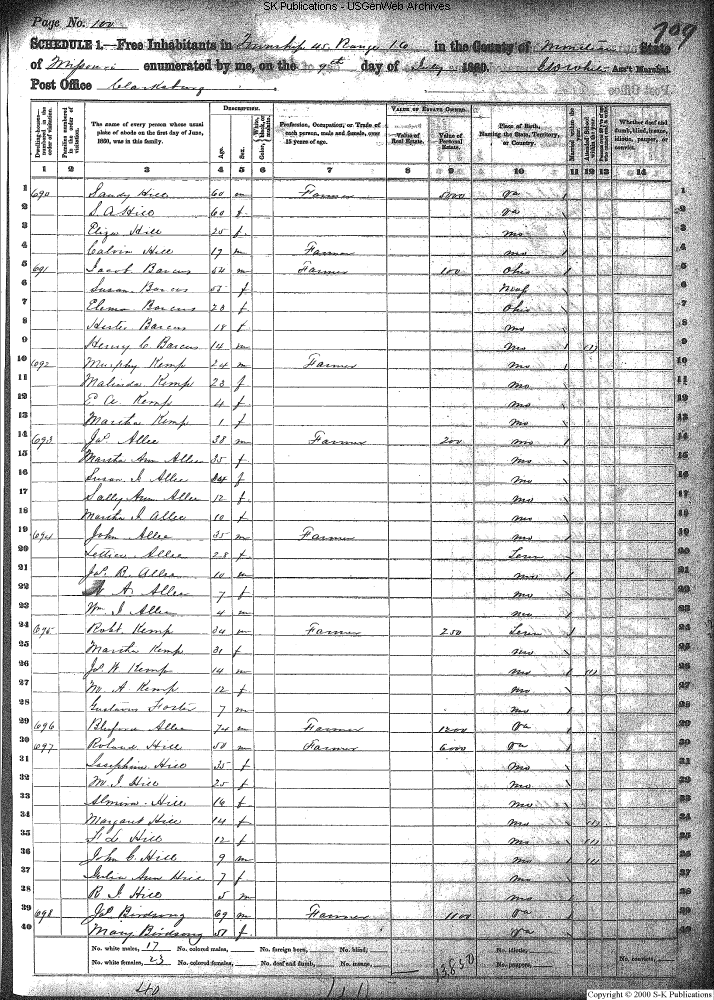 SK Publications - USGenWeb Archives
Page No. 100
709
SCHEDULE 1.—Free Inhabitants in Township 45 Range 16 in the County of Moniteau State
of Missouri enumerated by me, on the 9th day of July 1860. Ass't Marshal.
Post Office Clarksburg
Dwelling-houses—numbered in the order of visitation.
Families numbered in the order of visitation.
The name of every person whose usual place of abode on the first day of June, 1860, was in this family.
DESCRIPTION.
Age.
Sex.
Color, White, black, or mulatto.
Profession, Occupation, or Trade of each person, male and female, over 15 years of age.
VALUE OF ESTATE OWNED.
Value of Real Estate.
Value of Personal Estate.
Place of Birth, Naming the State, Territory, or Country.
Married within the year.
Attended School within the year.
Whether deaf and dumb, blind, insane, idiotic, pauper, or convict.
1 2 3 4 5 6 7 8 9 10 11 12 13 14
1 690 Sandy Hill 60 m Farmer 5000 Va / 1
2 S. A Hill 60 f Va 2
3 Eliza Hill 25 f Mo 3
4 Calvin Hill 19 m Farmer Mo 4
5 691 Jacob Barcus 54 m Farmer 100 Ohio 5
6 Susan Barcus 55 f 6
7 Barcus 23 f Ohio 7
8 Hester Barcus 18 f Mo 8
9 Henry C Barcus 14 m Mo 9
10 692 Murphy Kemp 24 m Farmer Mo 10
11 Malinda Kemp 23 f Mo 11
12 E A Kemp 4 f Mo 12
13 Martha Kemp 1 f Mo 13
14 693 Jas Allee 38 m Farmer 200 Mo 14
15 Martha Ann Allee 35 f Mo 15
16 Susan J. Allee f Mo 16
17 Sally Ann Allee 12 f Mo 17
18 Martha J Allee 10 f Mo 18
19 694 John Allee 35 m Farmer Mo 19
20 Lettice Allee 28 f Tenn 20
21 Jas B. Allee 10 m Mo 21
22 A Allee 7 f Mo 22
23 Wm J Allee 4 m Mo 23
24 695 Robt Kemp 34 m Farmer 250 Tenn 24
25 Martha Kemp 31 f Mo 25
26 Jas W Kemp 14 m Mo 26
27 M A Kemp 12 f Mo 27
28 Gustavus Foster 7 m Mo 28
29 696 Bluford Allee 74 m Farmer 1200 Va 29
30 697 Roland Hill 50 m Farmer 6000 Va 30
31 Josephine Hill 35 f Mo 31
32 M J Hill 25 f Mo 32
33 Almira Hill 16 f Mo 33
34 Margaret Hill 14 f Mo 34
35 Hill 12 f Mo 35
36 John C. Hill 9 m Mo 36
37 Julia Ann Hill 7 f Mo 37
38 R J Hill 5 m Mo 38
39 698 Jas Birdsong 69 m Farmer 1100 Va 39
40 Mary Birdsong 51 f Va 40
No. white males, 17 No. colored males, No. foreign born, No. blind, No. idiotic,
No. white females, 23 No. colored females, No. deaf and dumb, No. insane, 13850 No. paupers, No. convicts,
40
Copyright © 2000 S-K Publications